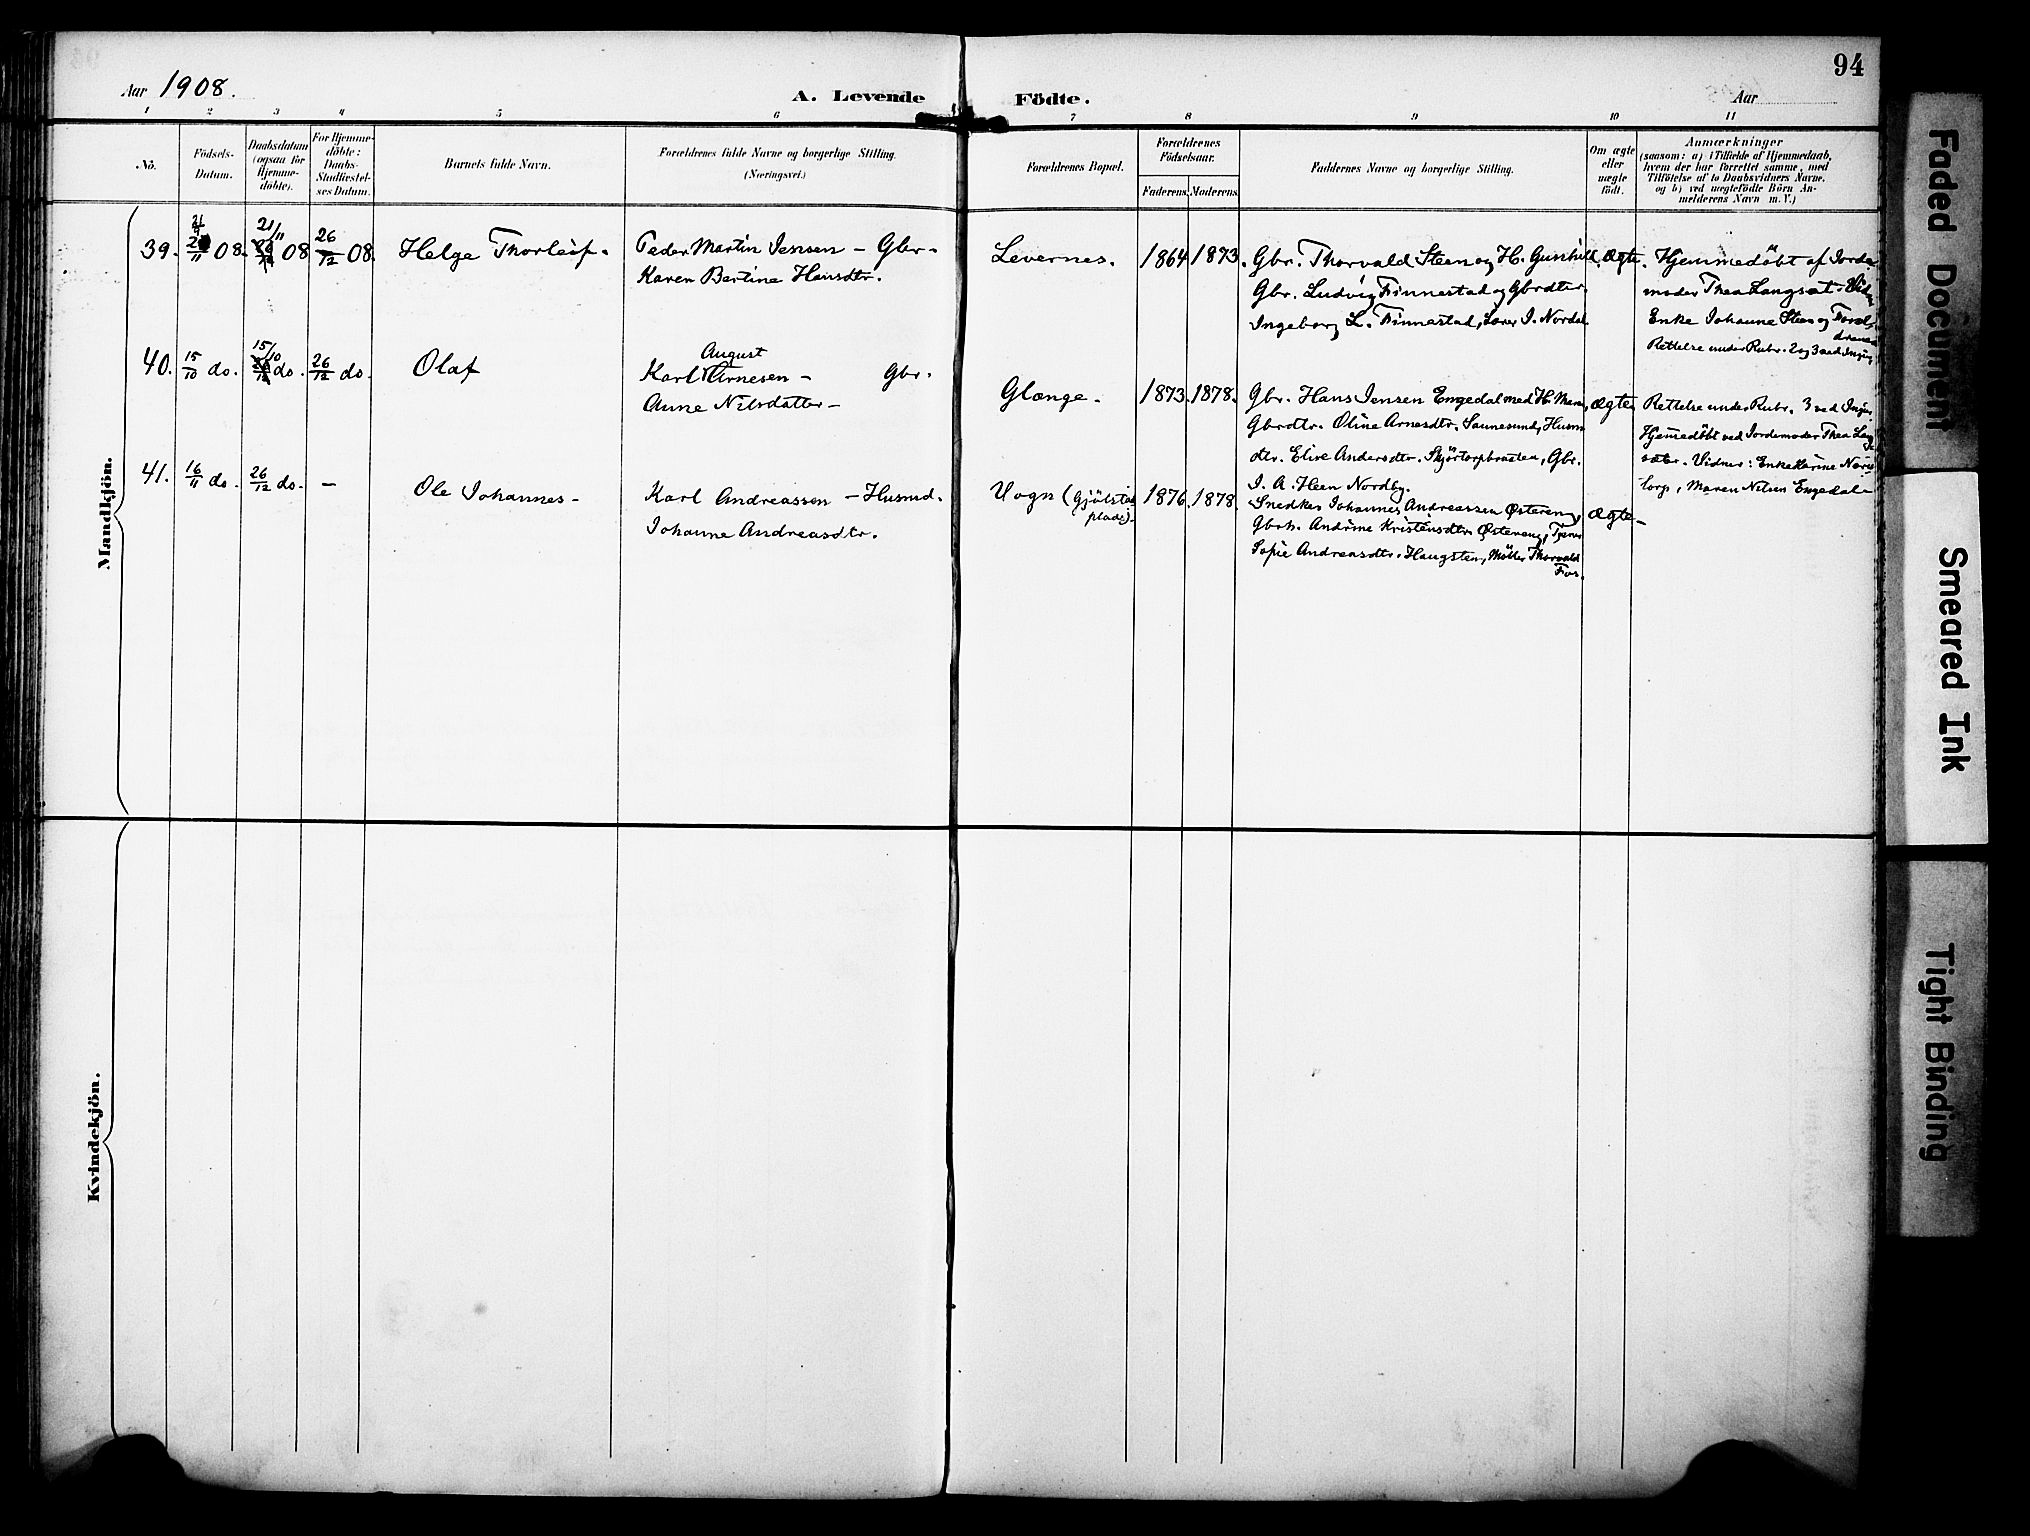 94
Aar 1908.
A. Levende Födte.
Aar
1 2 3 4 5 6 7 8 9 10 11
Nö.
Födsels-
Datum.
Daabsdatum
(ogsaa for
Hjemme-
döbte).
For Hjemme-
döbte:
Daabs-
Stadfæstel-
ses Datum.
Barnets fulde Navn.
Forældrenes fulde Navne og borgerlige Stilling.
(Næringsvei.)
Forældrenes Bopæl.
Forældrenes
Födselsaar.
Faderens. Moderens.
Faddernes Navne og borgerlige Stilling.
Om ægte
eller
uægte
födt.
Anmærkninger
(saasom: a) i Tilfælde af Hjemmedaab,
hvem der har forrettet samme, med
Tilföielse af to Daabsvidners Navne.
og b) ved uægtefödte Börn An-
melderens Navn m. V.)
Mandkjön.
39. 21/11 08. 21/11 08 26/12 08. Helge Thorleif.
Peder Martin Jensen – Gbr.
Karen Bertine Hansdtr.
Levernes. 1864 1873.
Gbr. Thorvald Steen og H. Gunhild.
Gbr. Ludvig Finnestad og Gbrdtr.
Ingeborg L. Finnestad, J. Nordal.
ægte.
Hjemmedöbt af Jorde
moder Thea Langsæt.
Enke Johanne Steen og
Rettelse under Rubr. 2 og 3 ved
40. 15/10 do. 15/10 do. 26/12 do. Olaf
August
Karl Arnesen – Gbr.
Anne Nilsdatter –
Glænge. 1873. 1878.
Gbr. Hans Jensen Engedal med H. Maren,
Gbrdtr. Oline Arnesdtr. Saunesund, Husm
dtr. Elise Andersdtr. Skjörtorpbraaten, Gbr.
J. A. Heen Nordby.
ægte
Rettelse under Rubr. 3 ved
Hjemmedöbt ved Jordemoder Thea Lang
sæter. Vidner: Enke Karine
torp, Maren Nilsen Engedal
41. 16/11 do. 26/12 do. – Ole Johannes –
Karl Andreassen – Husmd.
Johanne Andreasdtr.
Vogn (Gjölstad
plads). 1876. 1878.
Snedker Johannes Andreassen Østereng,
Gbrk. Andrine Kristensdtr. Østereng, Tjener
Sofie Andreasdtr. Haugsten, Möller Thorvald
Fos.
ægte –
Kvindekjön.
Faded Document
Smeared Ink
Tight Binding